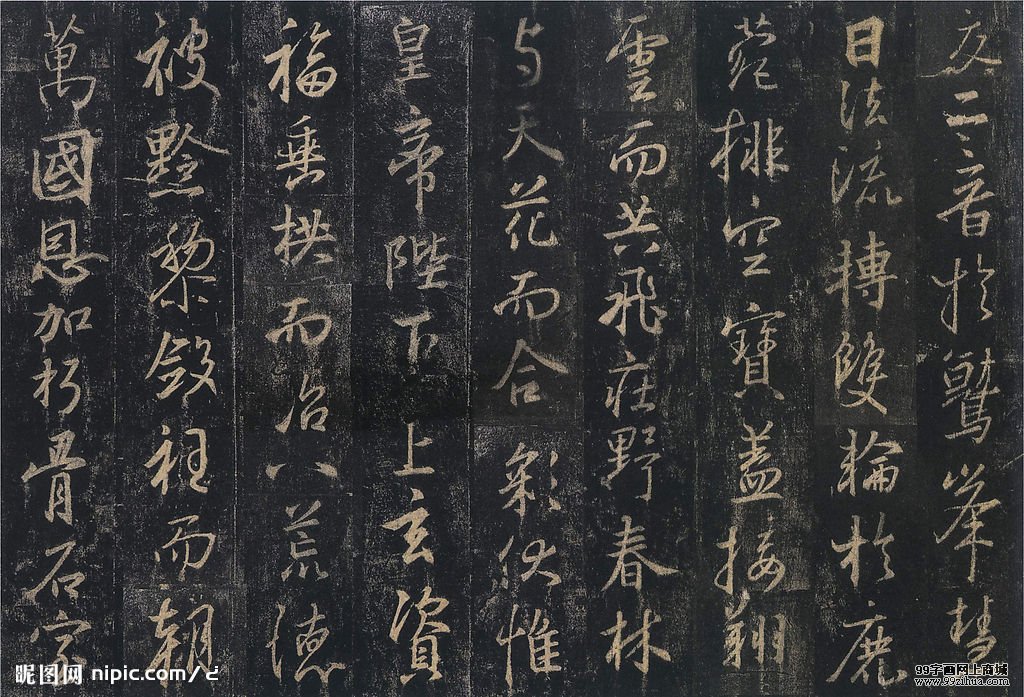 交二音於鷲峯慧
日法流轉雙輪於鹿
菀排空寶蓋接翔
雲而共飛莊野春林
与天花而合彩伏惟
皇帝陛下上玄資
福垂拱而治八荒德
被黔黎斂衽而朝
萬國恩加朽骨石室
昵图网 nipic.com/
99字画网上商城
www.99zihua.com